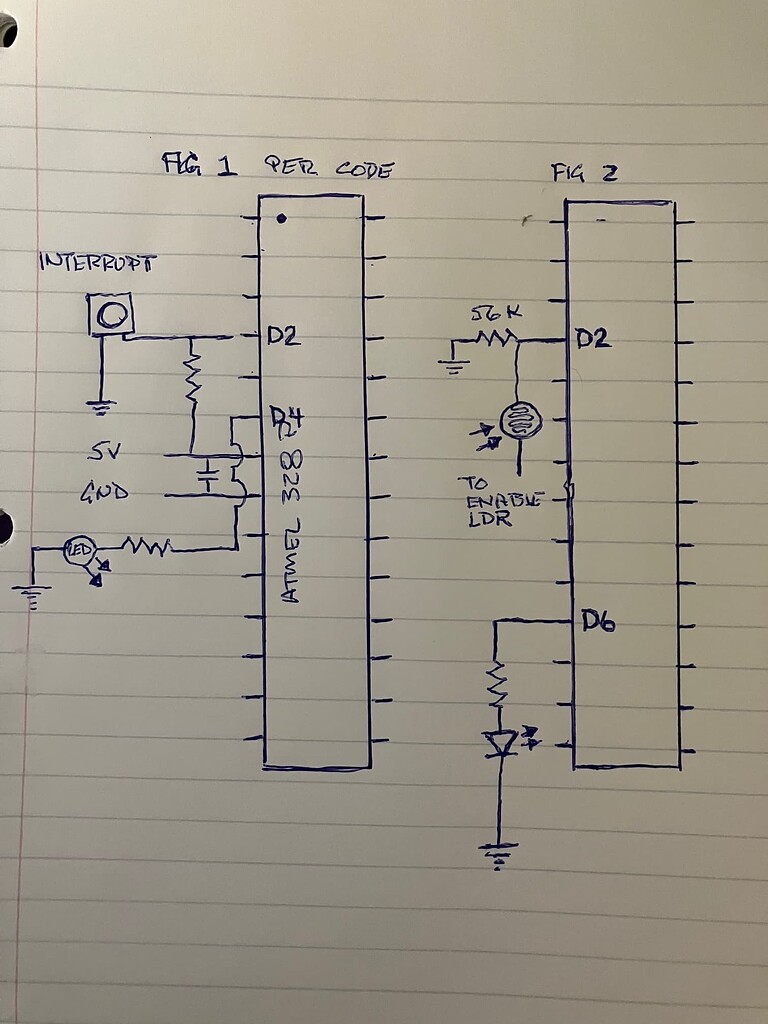 FIG 1 PER CODE
INTERRUPT
D2
D4
5V
GND
LED
ATMEL 328
FIG 2
56K
D2
TO
ENABLE
LDR
D6